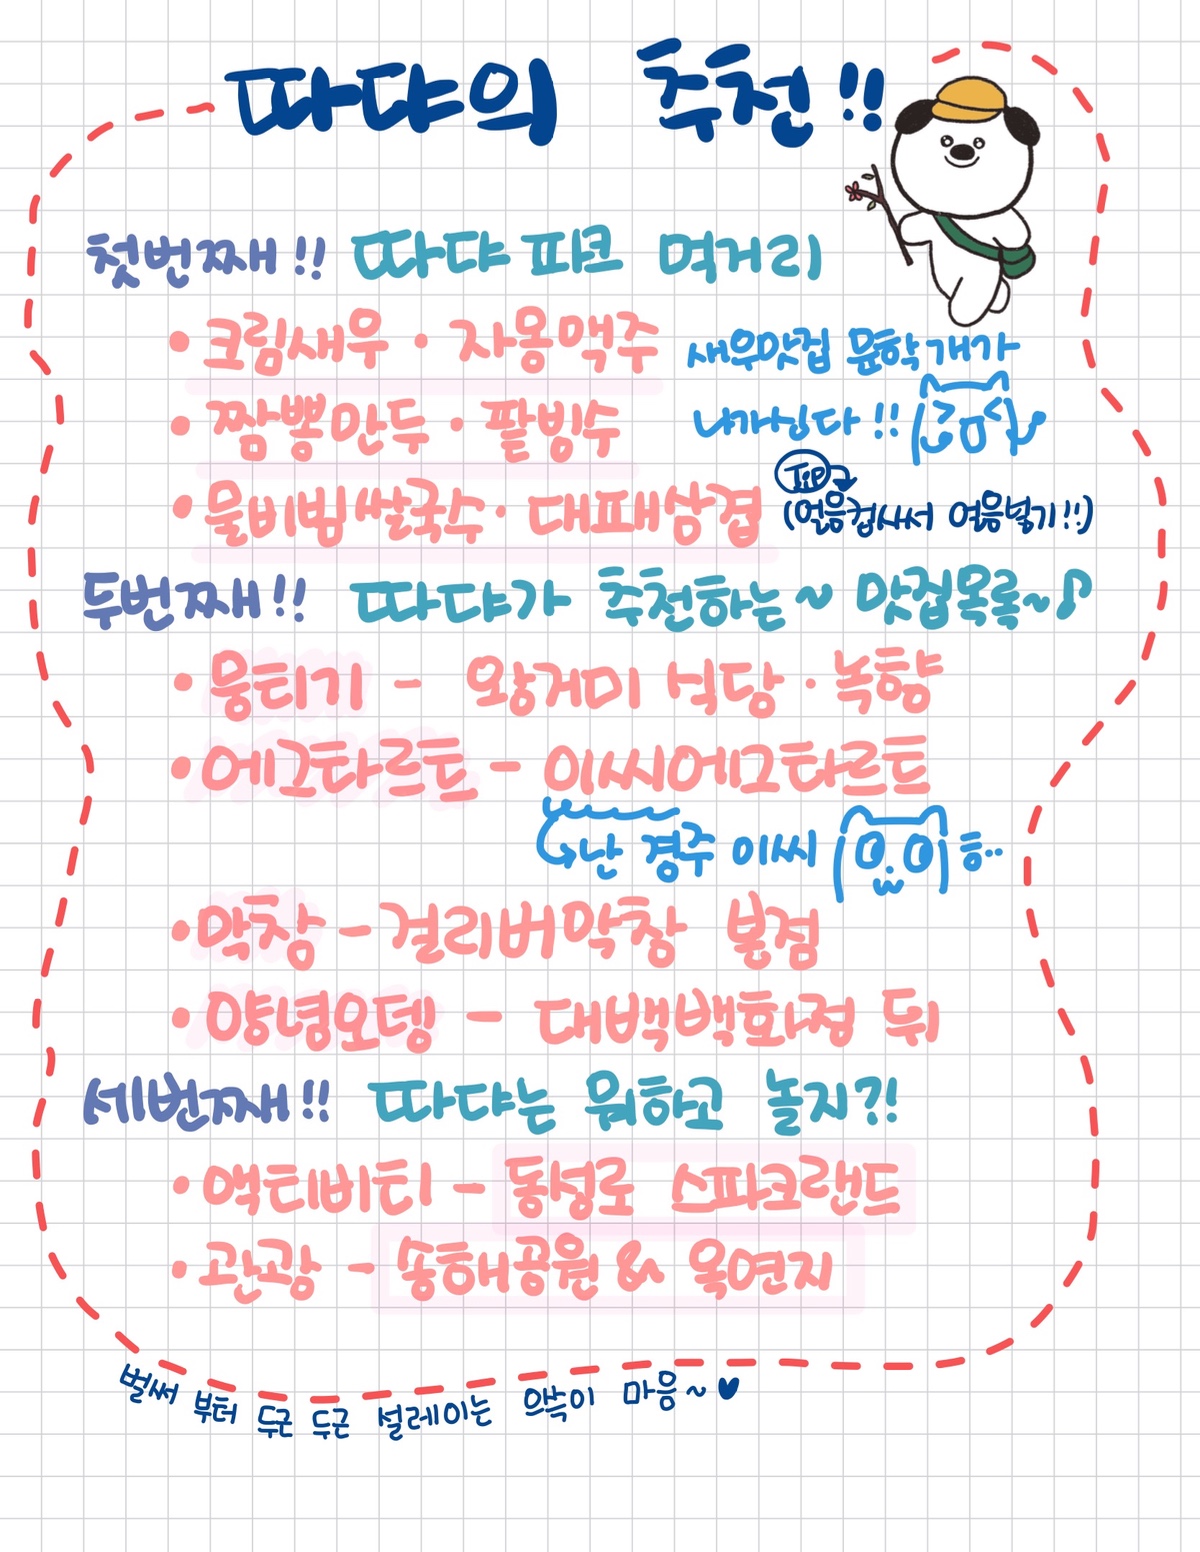 따댜의 추천!!
첫번째!! 따댜 파크 먹거리
• 크림새우 · 자몽맥주
새우맛집 문학 개가
나가신다!!
• 짬뽕만두 · 팥빙수
• 물비빔쌀국수 · 대패삼겹
Tip
(얼음컵사서 얼음넣기!!)
두번째!! 따댜가 추천하는~ 맛집목록~♪
• 뭉티기 - 왕거미 식당 · 녹향
• 에그타르트 - 이씨에그타르트
난 경주 이씨 ㅎ..
• 막창 - 걸리버막창 본점
• 양념오뎅 - 대백백화점 뒤
세번째!! 따댜는 뭐하고 놀지?!
• 액티비티 - 동성로 스파크랜드
• 관광 - 송해공원 & 옥연지
벌써 부터 두근 두근 설레이는 으쓱이 마음~ ♥